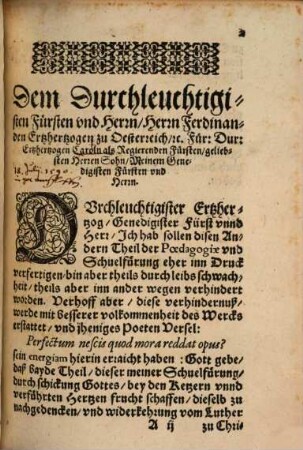 Dem Durchleuchtigi⸗
sten Fürsten vnd Herrn / Herrn Ferdinan⸗
den Ertzhertzogen zu Oesterreich / ꝛc. Für: Dur:
Ertzhertzogen Caroln als Regierenden Fürsten / gelieb⸗
sten Herren Sohn / Meinem Gene⸗
digisten Fürsten vnd
Herrn.
DVrchleuchtigister Ertzher⸗
tzog / Genedigister Fürst vnnd
Herr / Ich hab söllen disen An⸗
dern Theil der Pœdagogiæ vnd
Schuelfürung eher inn Druck
verfertigen / bin aber theils durch leibs schwach⸗
heit / theils aber inn ander wegen verhindert
worden. Verhoff aber / diese verhindernuß /
werde mit besserer volkommenheit des Wercks
erstattet / vnd jheniges Poeten Versel:
Perfectura nescis quod mora reddat opus?
sein energiam hierin erraicht haben: Gott gebe /
daß bayde Theil / dieser meiner Schuelfürung /
durch schickung Gottes / bey den Ketzern vnnd
verführten Hertzen frucht schaffen / dieselb zu
nachgedencken / vnd widerkehrung vom Luther
A ij zu Chri-